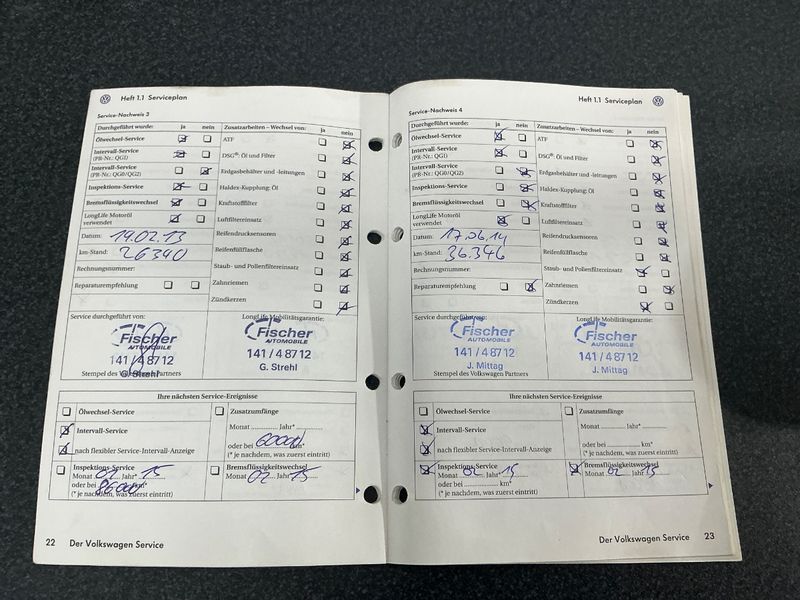 Heft 1.1 Serviceplan
Service-Nachweis 3
Durchgeführt wurde: ja nein Zusatzarbeiten – Wechsel von: ja nein
Ölwechsel-Service
ATF
Intervall-Service
(PR-Nr.: QG1)
DSG®: Öl und Filter
Intervall-Service
(PR-Nr.: QG0/QG2)
Erdgasbehälter und -leitungen
Inspektions-Service
Haldex-Kupplung: Öl
Bremsflüssigkeitswechsel
Kraftstofffilter
LongLife Motoröl
verwendet
Luftfiltereinsatz
Datum: 19.02.13
Reifendrucksensoren
km-Stand: 26390
Reifenfüllflasche
Rechnungsnummer:
Staub- und Pollenfiltereinsatz
Reparaturempfehlung
Zahnriemen
Zündkerzen
Service durchgeführt von: LongLife Mobilitätsgarantie:
Fischer
AUTOMOBILE
141 / 4 8712
G. Strehl
Fischer
AUTOMOBILE
141 / 4 8712
G. Strehl
Stempel des Volkswagen Partners
Ihre nächsten Service-Ereignisse
Ölwechsel-Service
Zusatzumfänge
Intervall-Service
Monat ........ Jahr* ........
nach flexibler Service-Intervall-Anzeige
oder bei 60000 km*
(* je nachdem, was zuerst eintritt)
Inspektions-Service
Monat 02 Jahr* 15
oder bei 86000
(* je nachdem, was zuerst eintritt)
Bremsflüssigkeitswechsel
Monat 02 Jahr 15
22 Der Volkswagen Service
Heft 1.1 Serviceplan
Service-Nachweis 4
Durchgeführt wurde: ja nein Zusatzarbeiten – Wechsel von: ja nein
Ölwechsel-Service
ATF
Intervall-Service
(PR-Nr.: QG1)
DSG®: Öl und Filter
Intervall-Service
(PR-Nr.: QG0/QG2)
Erdgasbehälter und -leitungen
Inspektions-Service
Haldex-Kupplung: Öl
Bremsflüssigkeitswechsel
Kraftstofffilter
LongLife Motoröl
verwendet
Luftfiltereinsatz
Datum: 17.06.14
Reifendrucksensoren
km-Stand: 36.346
Reifenfüllflasche
Rechnungsnummer:
Staub- und Pollenfiltereinsatz
Reparaturempfehlung
Zahnriemen
Zündkerzen
Service durchgeführt von: LongLife Mobilitätsgarantie:
Fischer
AUTOMOBILE
141 / 4 8712
J. Mittag
Fischer
AUTOMOBILE
141 / 4 8712
J. Mittag
Stempel des Volkswagen Partners
Ihre nächsten Service-Ereignisse
Ölwechsel-Service
Zusatzumfänge
Intervall-Service
Monat ........ Jahr* ........
nach flexibler Service-Intervall-Anzeige
oder bei ........ km*
(* je nachdem, was zuerst eintritt)
Inspektions-Service
Monat 02 Jahr* 15
oder bei ........ km*
(* je nachdem, was zuerst eintritt)
Bremsflüssigkeitswechsel
Monat 02 Jahr 15
Der Volkswagen Service 23